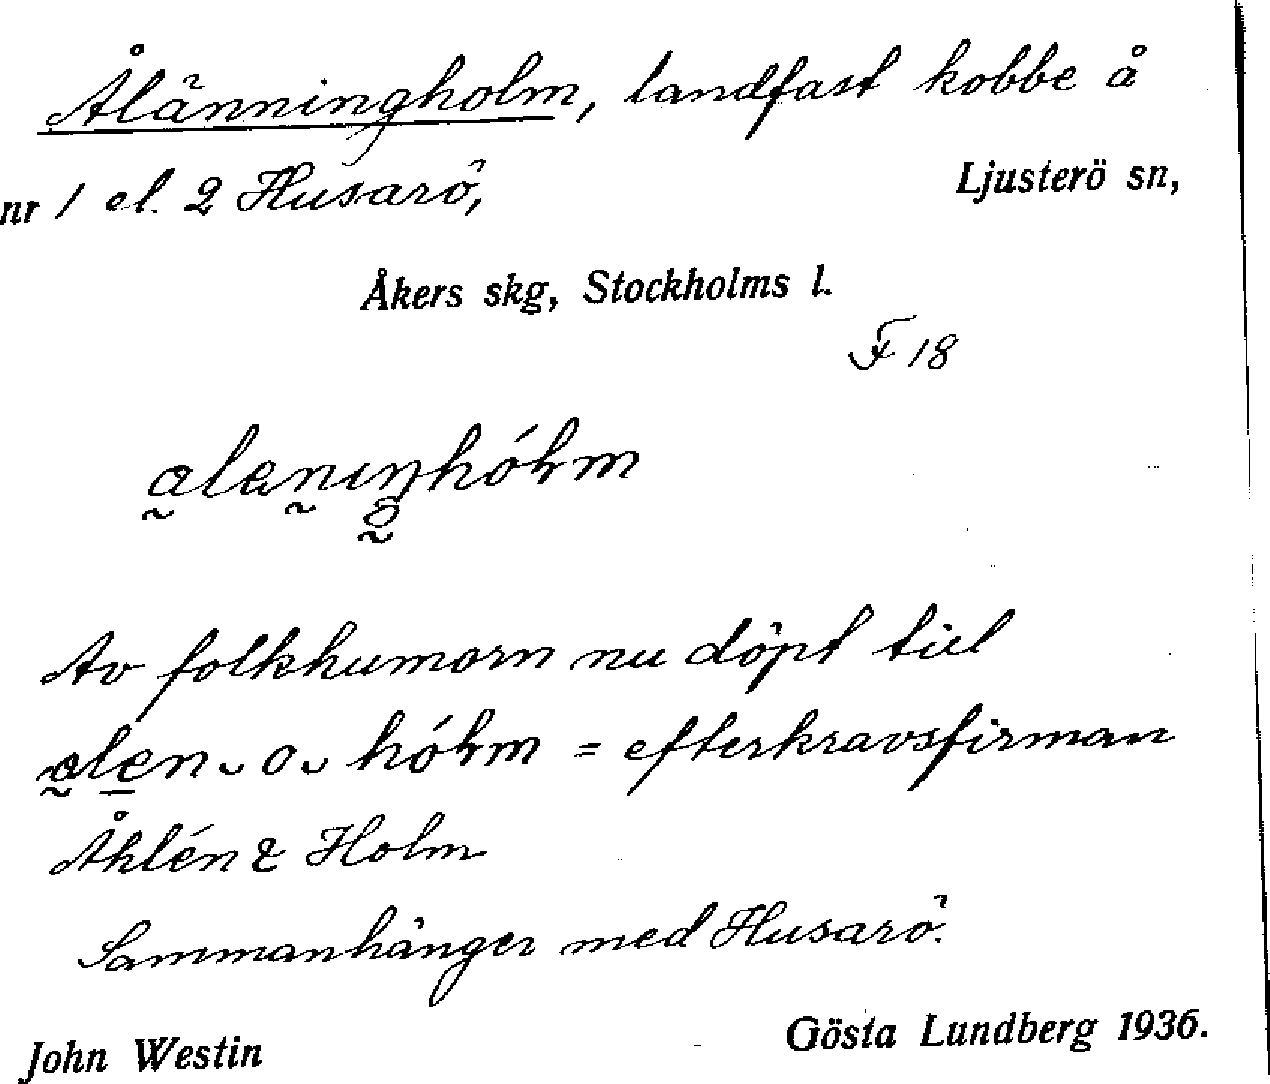 Ålänningholm, landfast kobbe å
nr 1 el. 2 Husarö, Ljusterö sn,
Åkers skg, Stockholms l.
F 18
Av folkhumorn nu döpt till
= efterkravsfirman
Åhlén & Holm
Sammanhänger med Husarö.
John Westin Gösta Lundberg 1936.